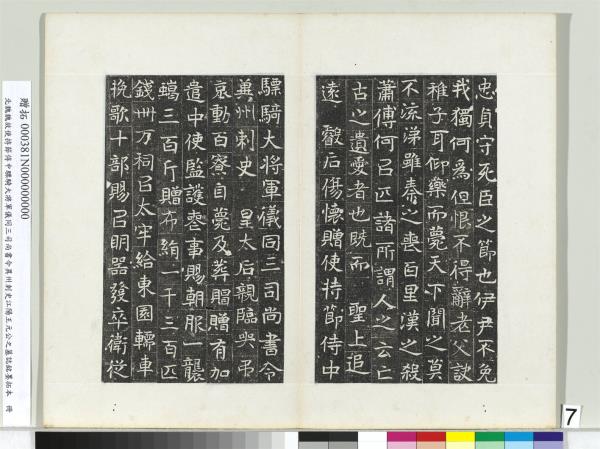 忠貞守死臣之節也伊尹不免
我獨何為但恨不得辭老父訣
稚子耳仰藥而薨天下聞之莫
不流涕雖秦之喪百里漢之殺
蕭傅何以匹諸所謂人之云亡
古之遺愛者也既而　聖上追
遠　嚴后傷懷贈使持節侍中
驃騎大將軍儀同三司尚書令
冀州刺史　皇太后親臨哭弔
哀動百寮自薨及葬賵贈有加
遣中使監護喪事賜朝服一襲
蠟三百斤贈布絹一千三百匹
錢卅万祠以太牢給東園轜車
挽歌十部賜以明器發卒衛從
贈拓 000381N000000000
北魏魏故使持節侍中驃騎大將軍儀同三司尚書令冀州刺史江陽王元公之墓誌銘墨拓本　冊
7